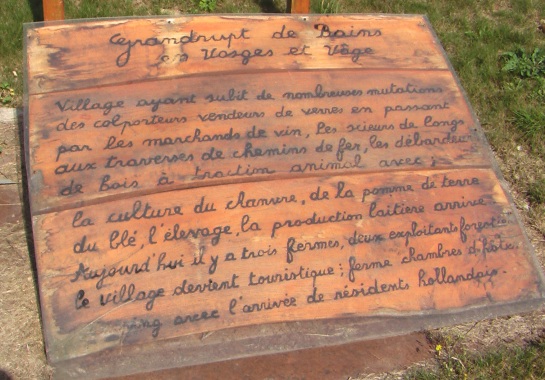 Grandrupt de Bains
en Vosges et Vôge
Village ayant subit de nombreuses mutations
des colporteurs vendeurs de verres en passant
par les marchands de vin, les scieurs de longs
aux traverses de chemins de fer, les débardeu
de bois à traction animal avec ;
la culture du chanvre, de la pomme de terre
du blé, l'élevage, la production laitière arrive
Aujourd'hui il y a trois fermes, deux exploitants forestie
le village devient touristique ; ferme chambres d'hôte,
ng avec l'arrivée de résidents hollandais.